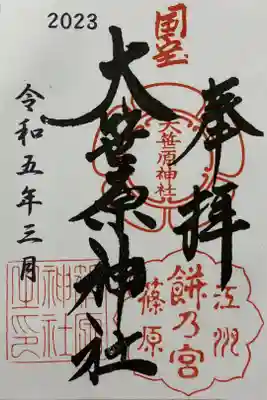 2023
国宝
奉拝
大笹原神社
大笹原神社
令和五年三月
江州
餅乃宮
篠原